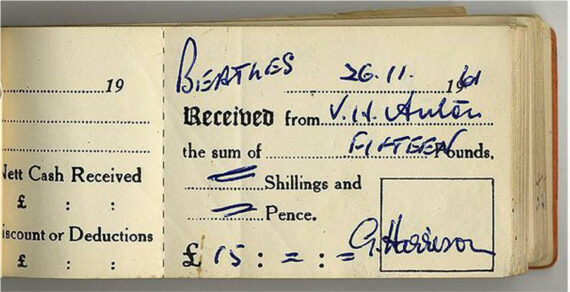 19
Nett Cash Received
£ : :
iscount or Deductions
£ : :
BEATLES 26.11. 1961
Received from V.H. Anton
the sum of FIFTEEN ounds,
= Shillings and
= Pence.
£ 15 : = : =
G. Harrison